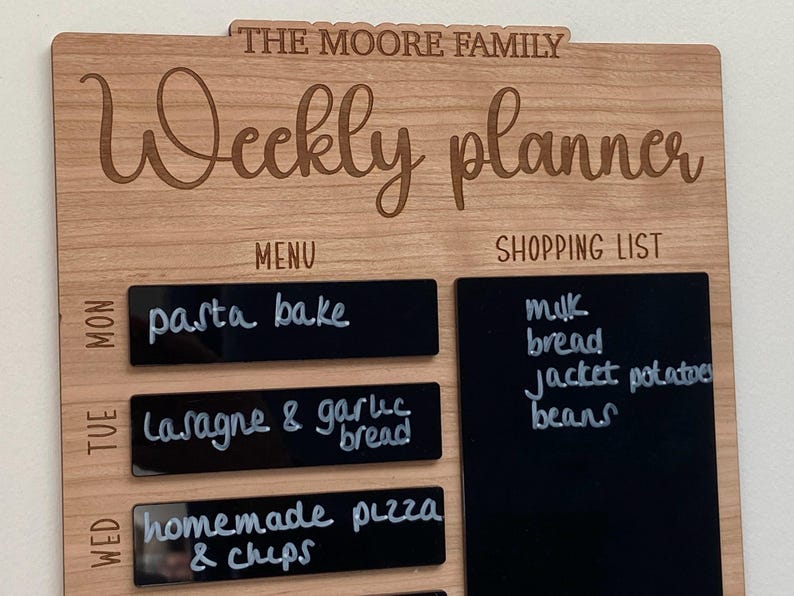 THE MOORE FAMILY
Weekly planner
MENU
MON
pasta bake
TUE
Lasagne & garlic
bread
WED
homemade pizza
& chips
SHOPPING LIST
milk
bread
jacket potatoes
beans